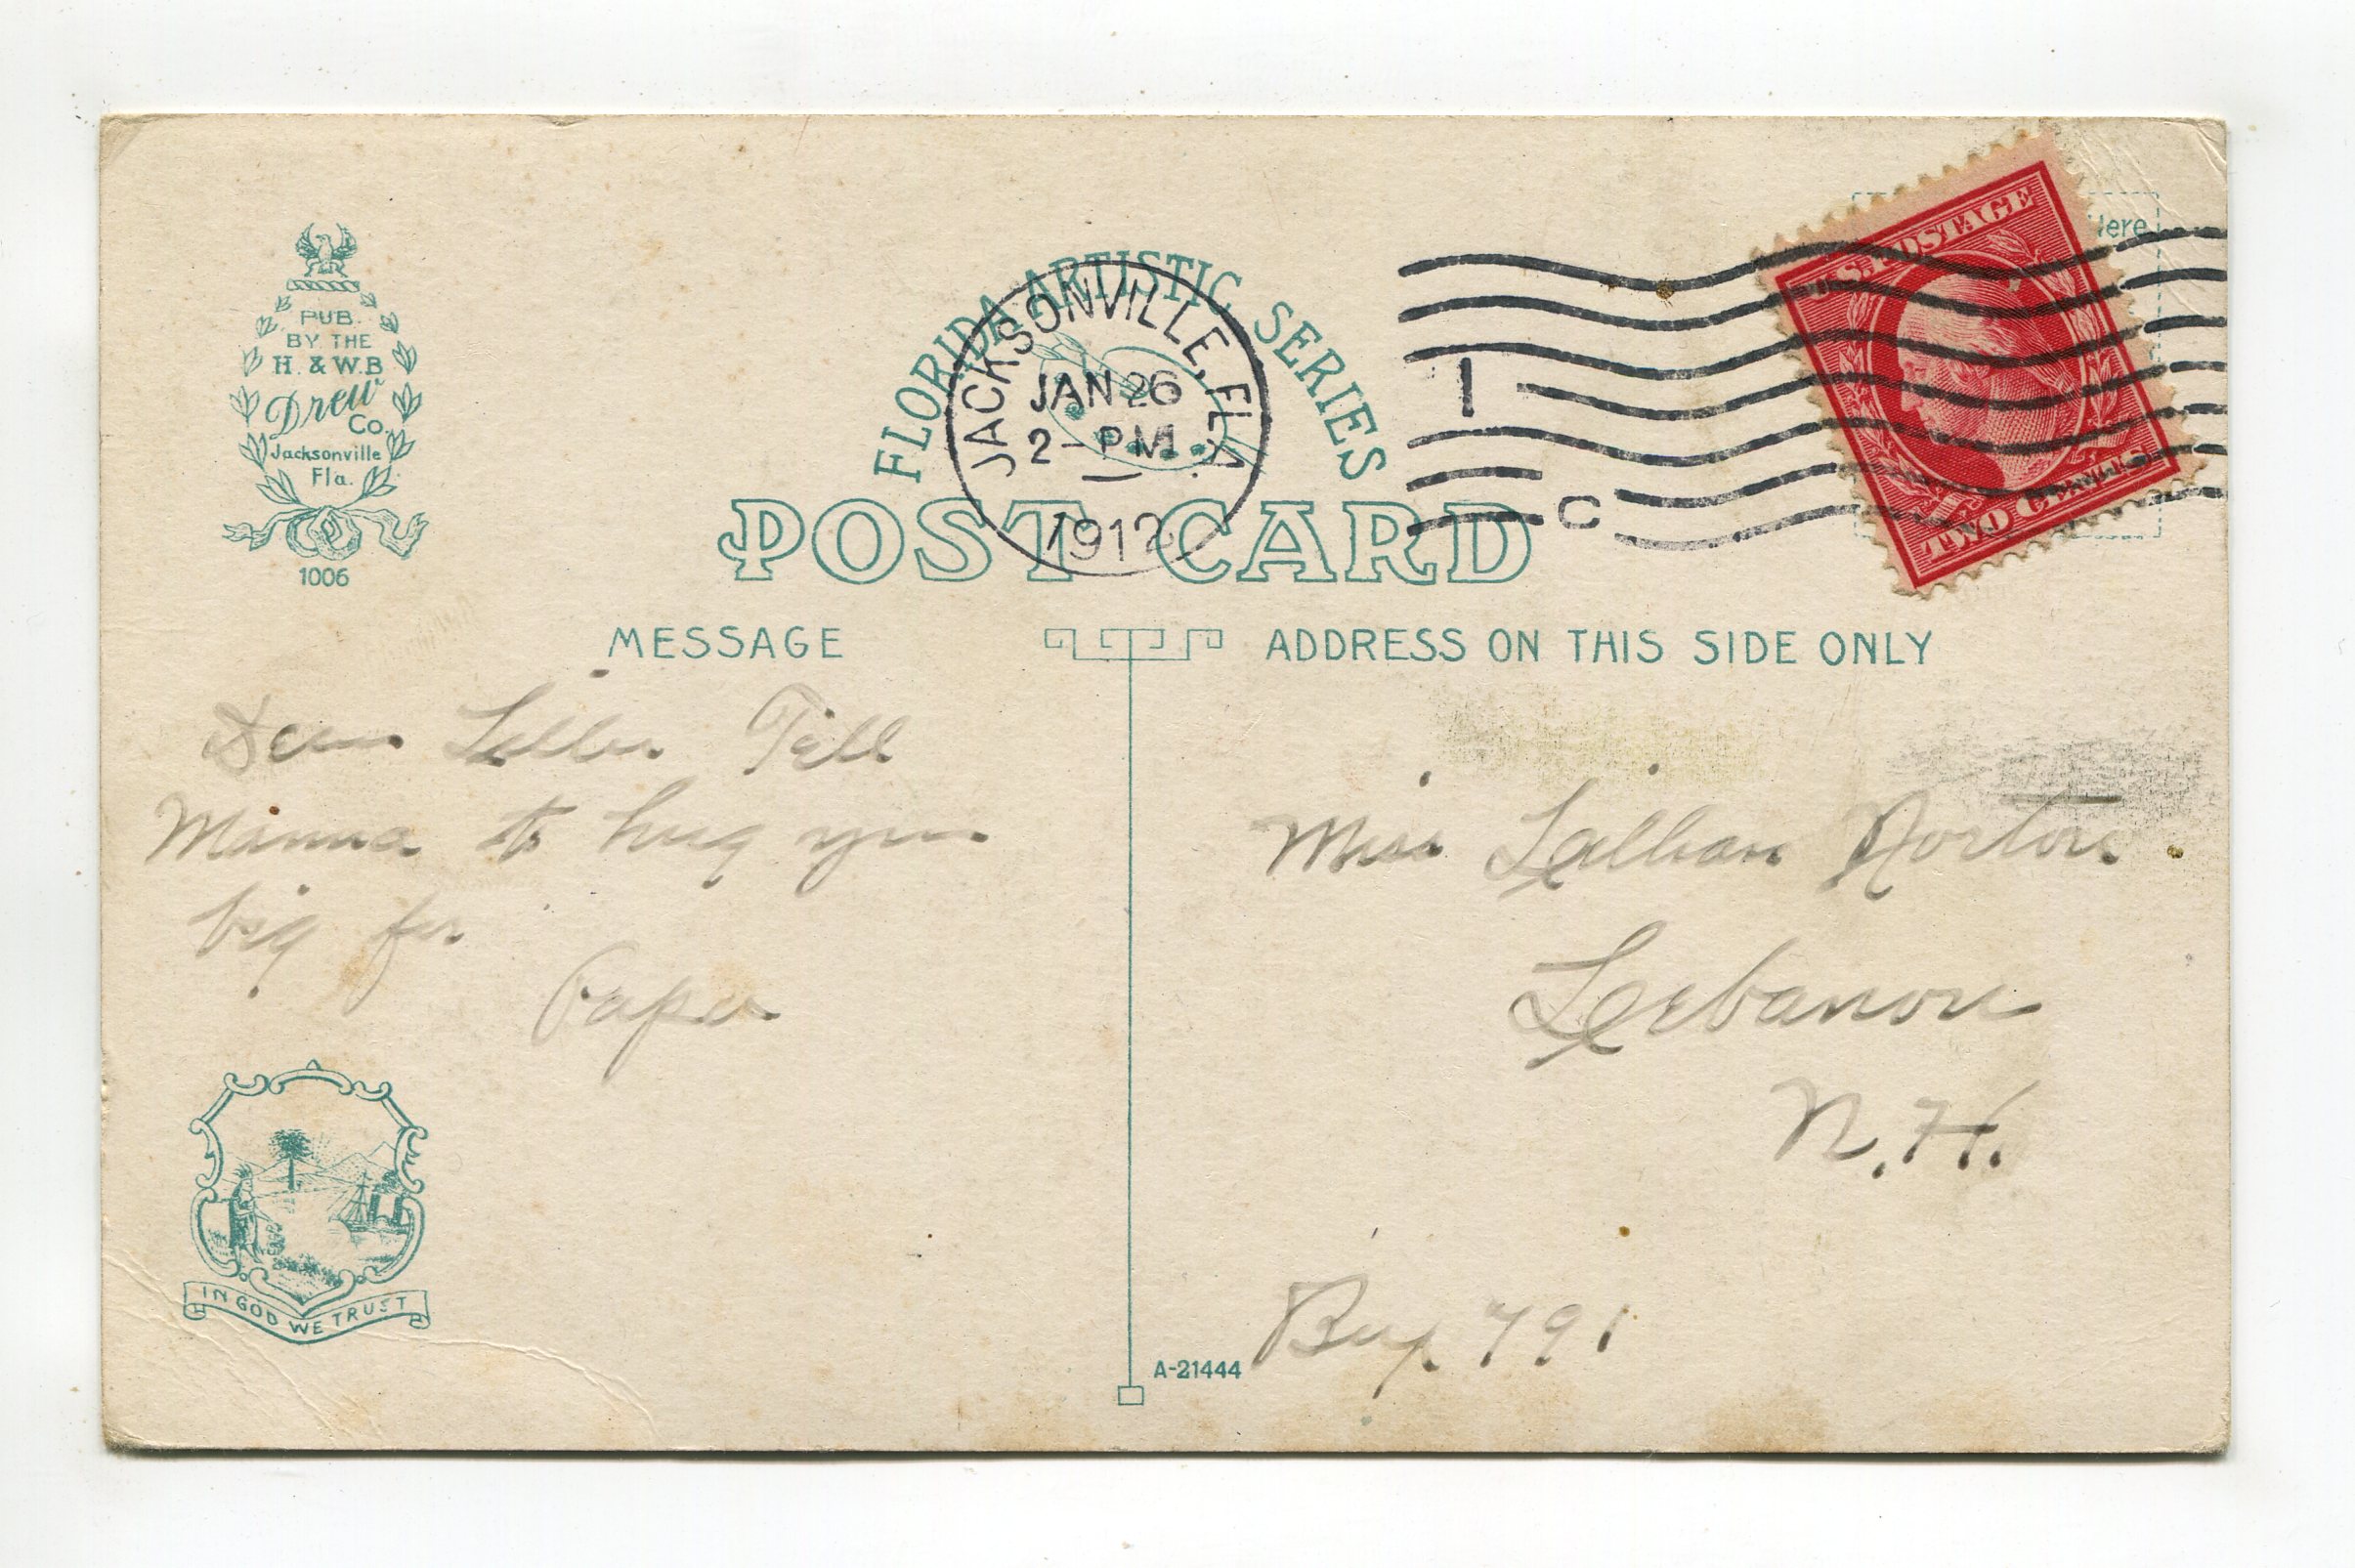 PUB.
BY THE
H. & W.B
Drew
Co.
Jacksonville
Fla.
1006
FLORIDA ARTISTIC SERIES
JACKSONVILLE, FLA.
JAN 26
2 - PM
1912
1
C
U.S. POSTAGE
TWO CENTS
Here
POST CARD
MESSAGE
ADDRESS ON THIS SIDE ONLY
Dear Tell
Mamma to hug you
big for
Papa
Miss Lillian Norton
Lebanon
N.H.
791
IN GOD WE TRUST
A-21444